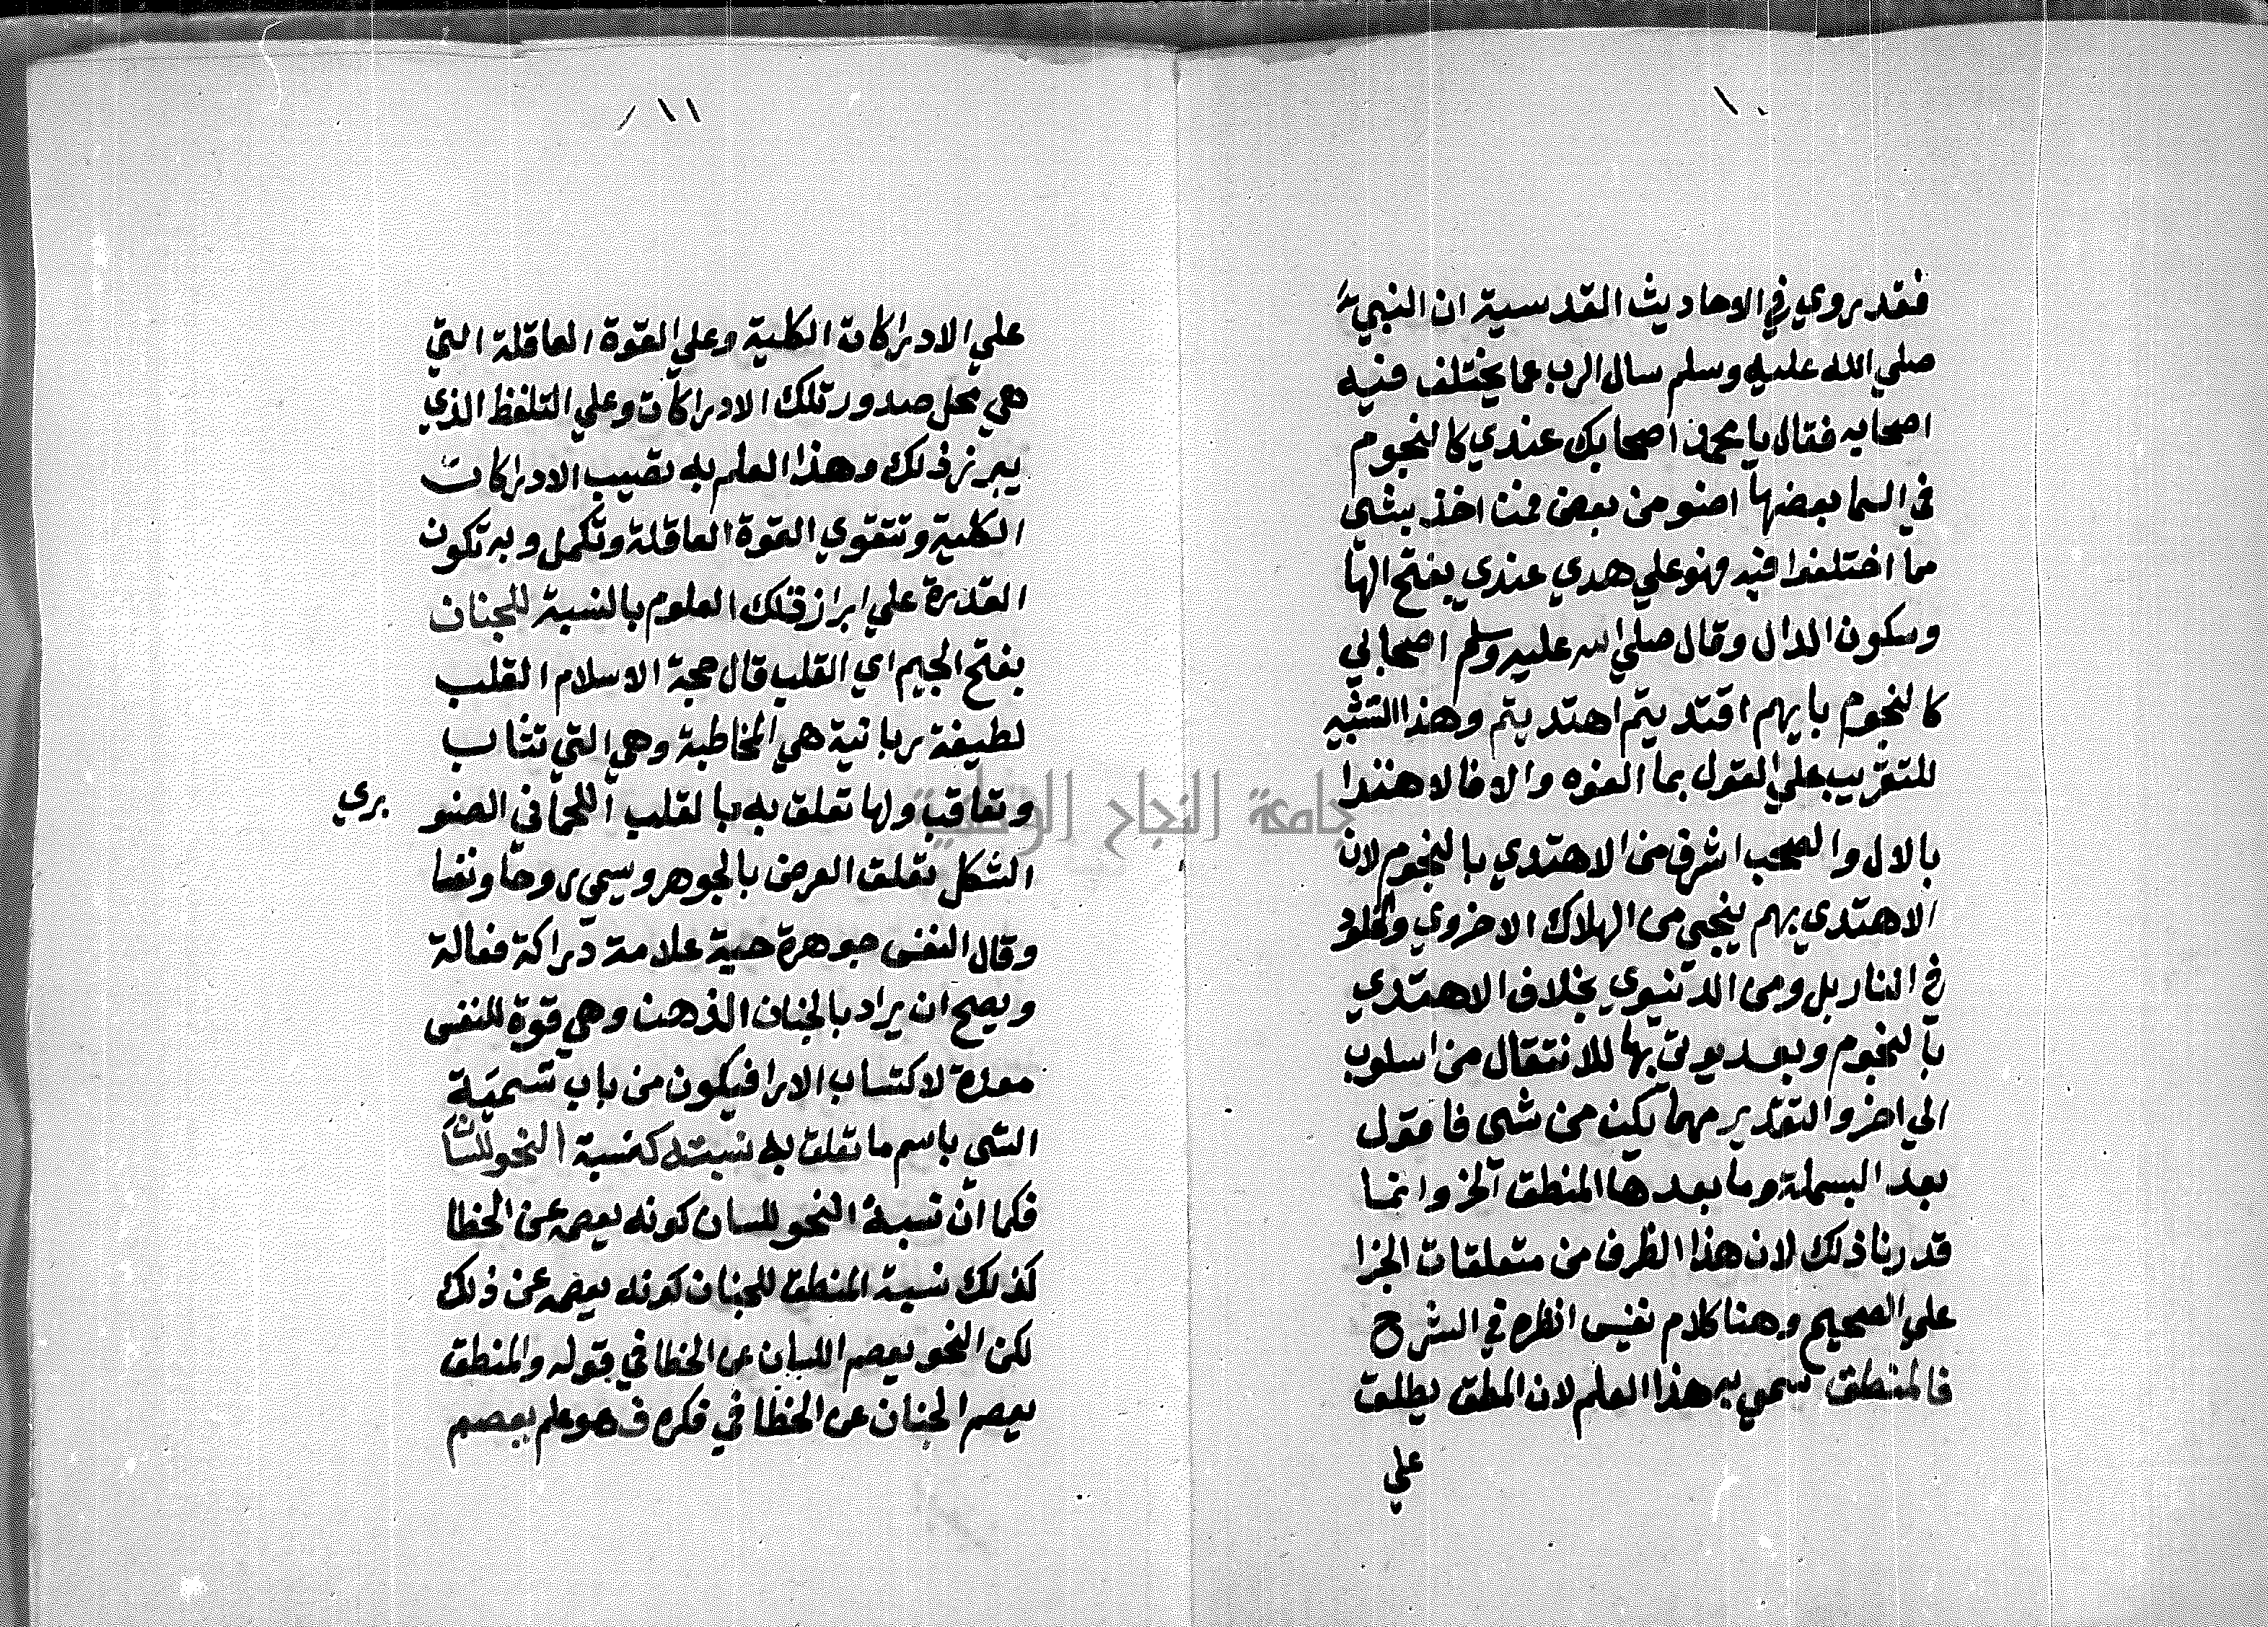 ١٠
فقد روي في الاحاديث القدسية ان النبي
صلي الله عليه وسلم سال الرب عما يختلف فيه
اصحابه فقال يا محمد اصحابك عندي كالنجوم
في السما بعضها اضو من بعض فمن اخذ بشي
مما اختلفوا فيه فهو علي هدي عندي بفتح الها
وسكون الدال وقال صلي الله عليه وسلم اصحابي
كالنجوم بايهم اقتديتم اهتديتم وهذا التشبيه
للتقريب علي القول بما الفوه والا فالاهتدا
بالال والصحب اشرف من الاهتدي بالنجوم لان
الاهتدي بهم ينجي من الهلاك الاخروي والخلود
في النار بل ومن الدنيوي بخلاف الاهتدي
بالنجوم وبعد يوتي بها للانتقال من اسلوب
الي اخر والتقدير مهما يكن من شي فاقول
بعد البسملة وما بعدها المنطق الخ وانما
قدرنا ذلك لان هذا الظرف من متعلقات الجزا
علي الصحيح وهنا كلام نفيس انظره في الشرح
فالمنطق سمي به هذا العلم لان المطق يطلق
علي
١١
علي الادراكات الكلية وعلي القوة العاقلة التي
هي محل صدور تلك الادراكات وعلي التلفظ الذي
يبرز ذلك وهذا العلم به تصيب الادراكات
الكلية وتتقوي القوة العاقلة وتكمل وبه تكون
القدرة علي ابراز تلك العلوم بالنسبة للجنان
بفتح الجيم اي القلب قال حجة الاسلام القلب
لطيفة ربانية هي المخاطبة وهي التي تثاب
وتعاقب ولها تعلق به بالقلب اللحماني الصنو
بري
الشكل تعلق العرض بالجوهر ويسمي روحا ونفسا
وقال النفس جوهرة حية علامة دراكة فعالة
ويصح ان يراد بالجنان الذهن وهي قوة للنفس
معدة لاكتساب الارا فيكون من باب تسمية
الشي باسم ما تعلق به نسبته كنسبة النحو للسان
فكما ان نسبة النحو للسان كونه يعصمه عن الخطا
كذلك نسبة المنطق للجنان كونه يعصمه عن ذلك
لكن النحو يعصم اللسان عن الخطا في قوله والمنطق
يعصم الجنان عن الخطا في فكره فهو علم يعصم
جامعة النجاح الوطنية